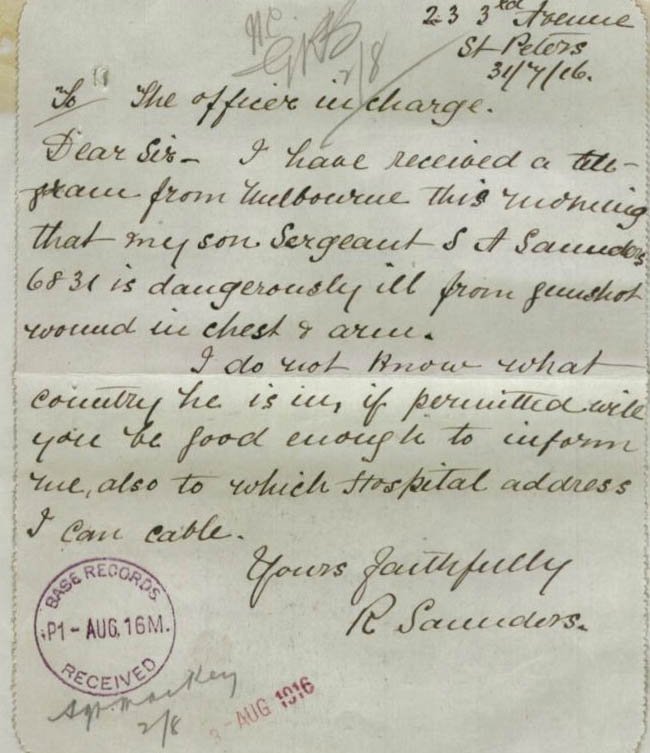 23 3rd Avenue
St Peters
31/7/16.
2/8
To The officer in charge.
Dear Sir- I have received a tele-
gram from Melbourne this morning
that my son Sergeant S A Saunders
6831 is dangerously ill from gunshot
wound in chest & arm.
I do not know what
country he is in, if permitted will
you be good enough to inform
me, also to which Hospital address
I can cable.
Yours faithfully
R Saunders.
BASE RECORDS
P1-AUG.16M.
RECEIVED
2/8
3-AUG 1916